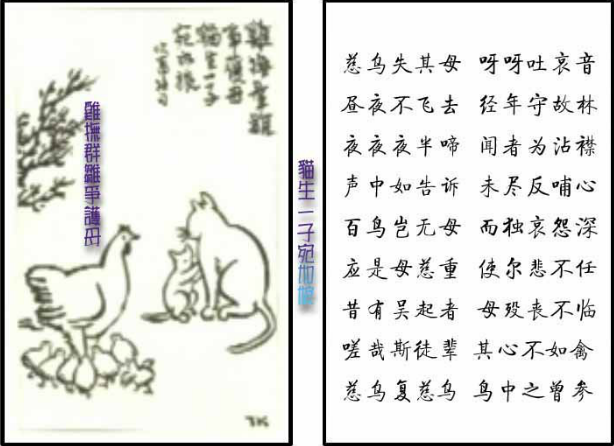 雞撫羣雛
爭護母
貓生一子
宛如娘
雞撫群雛爭護母
TK
貓生一子宛如娘
慈乌失其母 呀呀吐哀音
昼夜不飞去 经年守故林
夜夜夜半啼 闻者为沾襟
声中如告诉 未尽反哺心
百鸟岂无母 而独哀怨深
应是母慈重 使尔悲不任
昔有吴起者 母殁丧不临
嗟哉斯徒辈 其心不如禽
慈乌复慈乌 鸟中之曾参